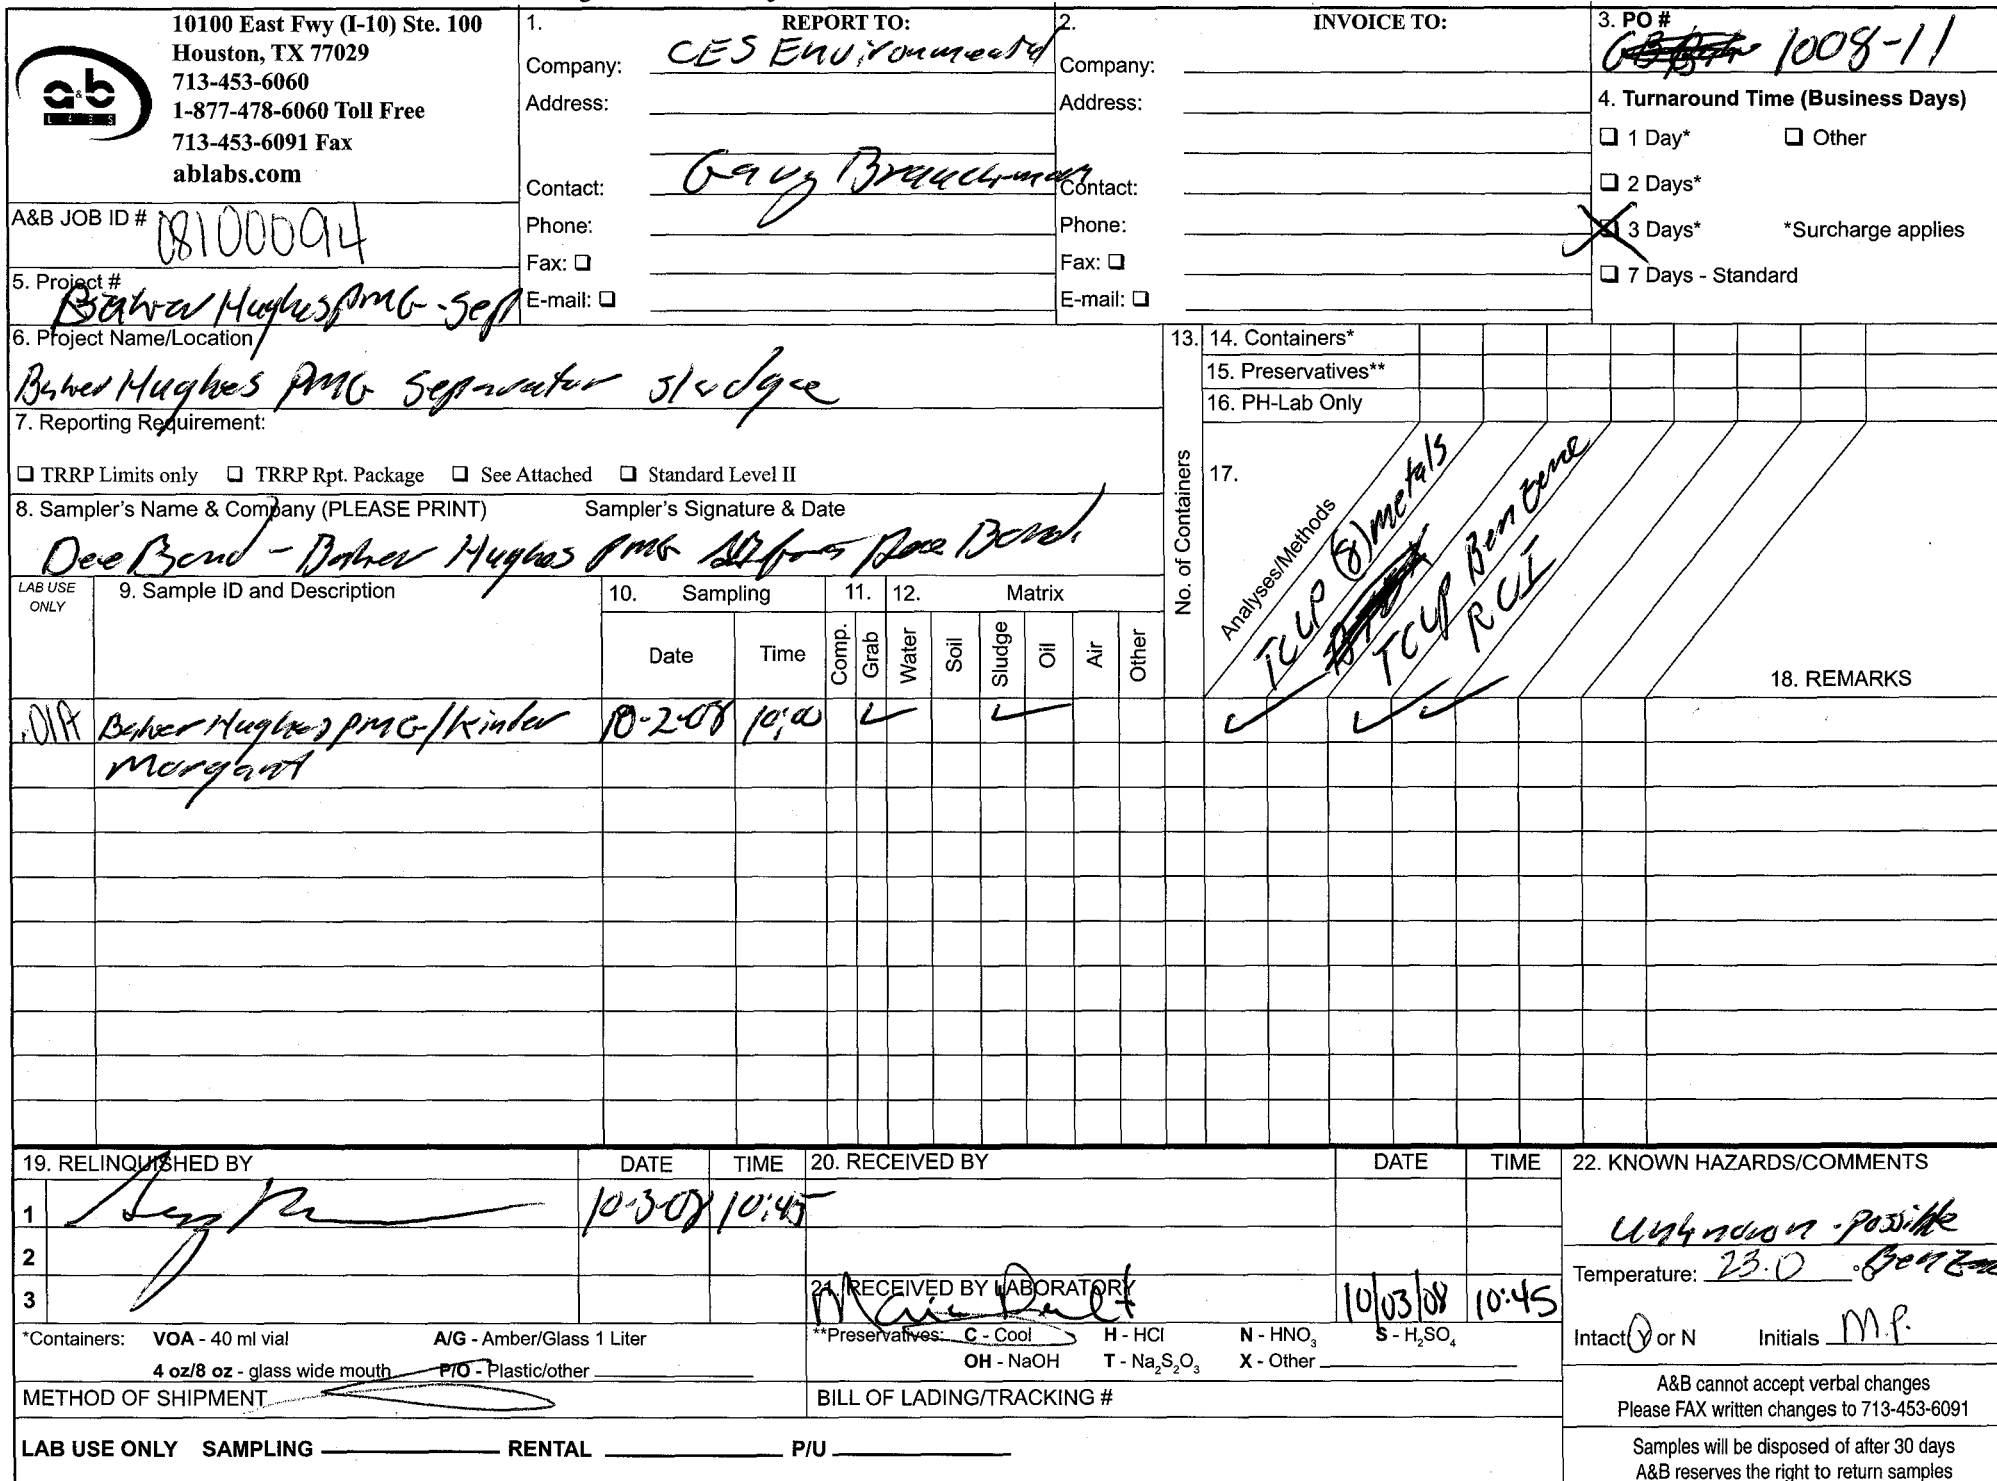 10100 East Fwy (I-10) Ste. 100
Houston, TX 77029
713-453-6060
1-877-478-6060 Toll Free
713-453-6091 Fax
ablabs.com
a&b
LABS
A&B JOB ID # 08100094
5. Project #
Baker Hughes PMG - Sep
1. REPORT TO:
Company: CES Environmental
Address:
Contact: Gary Brauckman
Phone:
Fax: ☐
E-mail: ☐
2. INVOICE TO:
Company:
Address:
Contact:
Phone:
Fax: ☐
E-mail: ☐
3. PO #
1008-11
4. Turnaround Time (Business Days)
☐ 1 Day* ☐ Other
☐ 2 Days*
☒ 3 Days* *Surcharge applies
☐ 7 Days - Standard
6. Project Name/Location
Baker Hughes PMG Separator sludge
7. Reporting Requirement:
☐ TRRP Limits only ☐ TRRP Rpt. Package ☐ See Attached ☐ Standard Level II
8. Sampler's Name & Company (PLEASE PRINT) Sampler's Signature & Date
Dee Bond - Baker Hughes PMG Dee Bond
13. No. of Containers
14. Containers*
15. Preservatives**
16. PH-Lab Only
17. Analyses/Methods
TCLP (8) metals
TCLP Benzene
RCI
18. REMARKS
LAB USE ONLY
9. Sample ID and Description
10. Sampling
Date Time
11. Comp. Grab
12. Matrix
Water Soil Sludge Oil Air Other
.01A Baker Hughes PMG/Kinder 10-2-08 10:00 ✓ ✓ ✓ ✓ ✓
Morgant
19. RELINQUISHED BY DATE TIME
1 10-3-08 10:45
2
3
20. RECEIVED BY DATE TIME
21. RECEIVED BY LABORATORY
10/03/08 10:45
22. KNOWN HAZARDS/COMMENTS
Unknown - possible
Temperature: 23.0
Intact (Y) or N Initials M.P.
*Containers: VOA - 40 ml vial A/G - Amber/Glass 1 Liter
4 oz/8 oz - glass wide mouth P/O - Plastic/other
**Preservatives: C - Cool H - HCl N - HNO3 S - H2SO4
OH - NaOH T - Na2S2O3 X - Other
METHOD OF SHIPMENT
BILL OF LADING/TRACKING #
A&B cannot accept verbal changes
Please FAX written changes to 713-453-6091
LAB USE ONLY SAMPLING RENTAL P/U
Samples will be disposed of after 30 days
A&B reserves the right to return samples